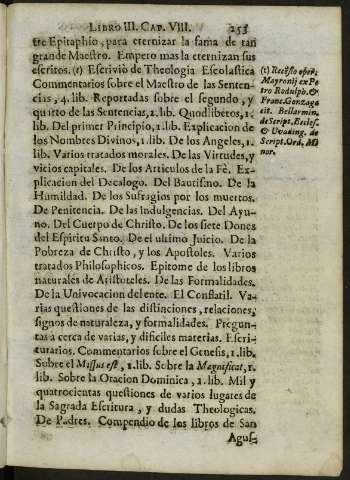 LIBRO III. CAP. VIII. 253
tre Epitaphio, para eternizar la fama de tan
grande Maestro. Empero mas la eternizan sus
escritos. (t) Escrivió de Theologia Escolastica
Commentarios sobre el Maestro de las Senten-
cias, 4. lib. Reportadas sobre el segundo, y
quarto de las Sentencias, 2. lib. Quodlibetos, 1.
lib. Del primer Principio, 1. lib. Explicacion de
los Nombres Divinos, 1. lib. De los Angeles, 1.
lib. Varios tratados morales. De las Virtudes, y
vicios capitales. De los Articulos de la Fè. Ex-
plicacion del Decalogo. Del Bautismo. De la
Humildad. De los Sufragios por los muertos.
De Penitencia. De las Indulgencias. Del Ayu-
no. Del Cuerpo de Christo. De los siete Dones
del Espiritu Santo. De el ultimo Juicio. De la
Pobreza de Christo, y los Apostoles. Varios
tratados Philosophicos. Epitome de los libros
naturales de Aristoteles. De las Formalidades.
De la Univocacion del ente. El Conflatil. Va-
rias questiones de las distinciones, relaciones,
signos de naturaleza, y formalidades. Pregun-
tas a cerca de varias, y dificiles materias. Escri-
turarios. Commentarios sobre el Genesis, 1. lib.
Sobre el Missus est, 1. lib. Sobre la Magnificat, 1.
lib. Sobre la Oracion Dominica, 1. lib. Mil y
quatrocientas questiones de varios lugares de
la Sagrada Escritura, y dudas Theologicas.
De Padres. Compendio de los libros de San
Agus-
(t) Recēsio oper.
Mayronij ex Pe
tro Rodulph. &
Franc. Gonzaga
cit. Bellarmin.
de Script. Eccles.
& Uvading. de
Script. Ord. Mi
nor.